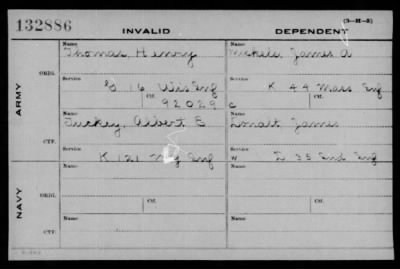 (3-H-3)
132886 INVALID DEPENDENT
Name Name
Thomas Henry James A
Service Service
G 16 Wis Inf K 44 Mass Inf
Ctf. Ctf.
92029 C
ORIG.
ARMY
Name Name
Tuckey, Albert E James
CTF.
Service Service
K 121 Inf W I 35 Ind Inf
Name Name
ORIG.
NAVY
Service Service
Ctf. Ctf.
Name Name
CTF.